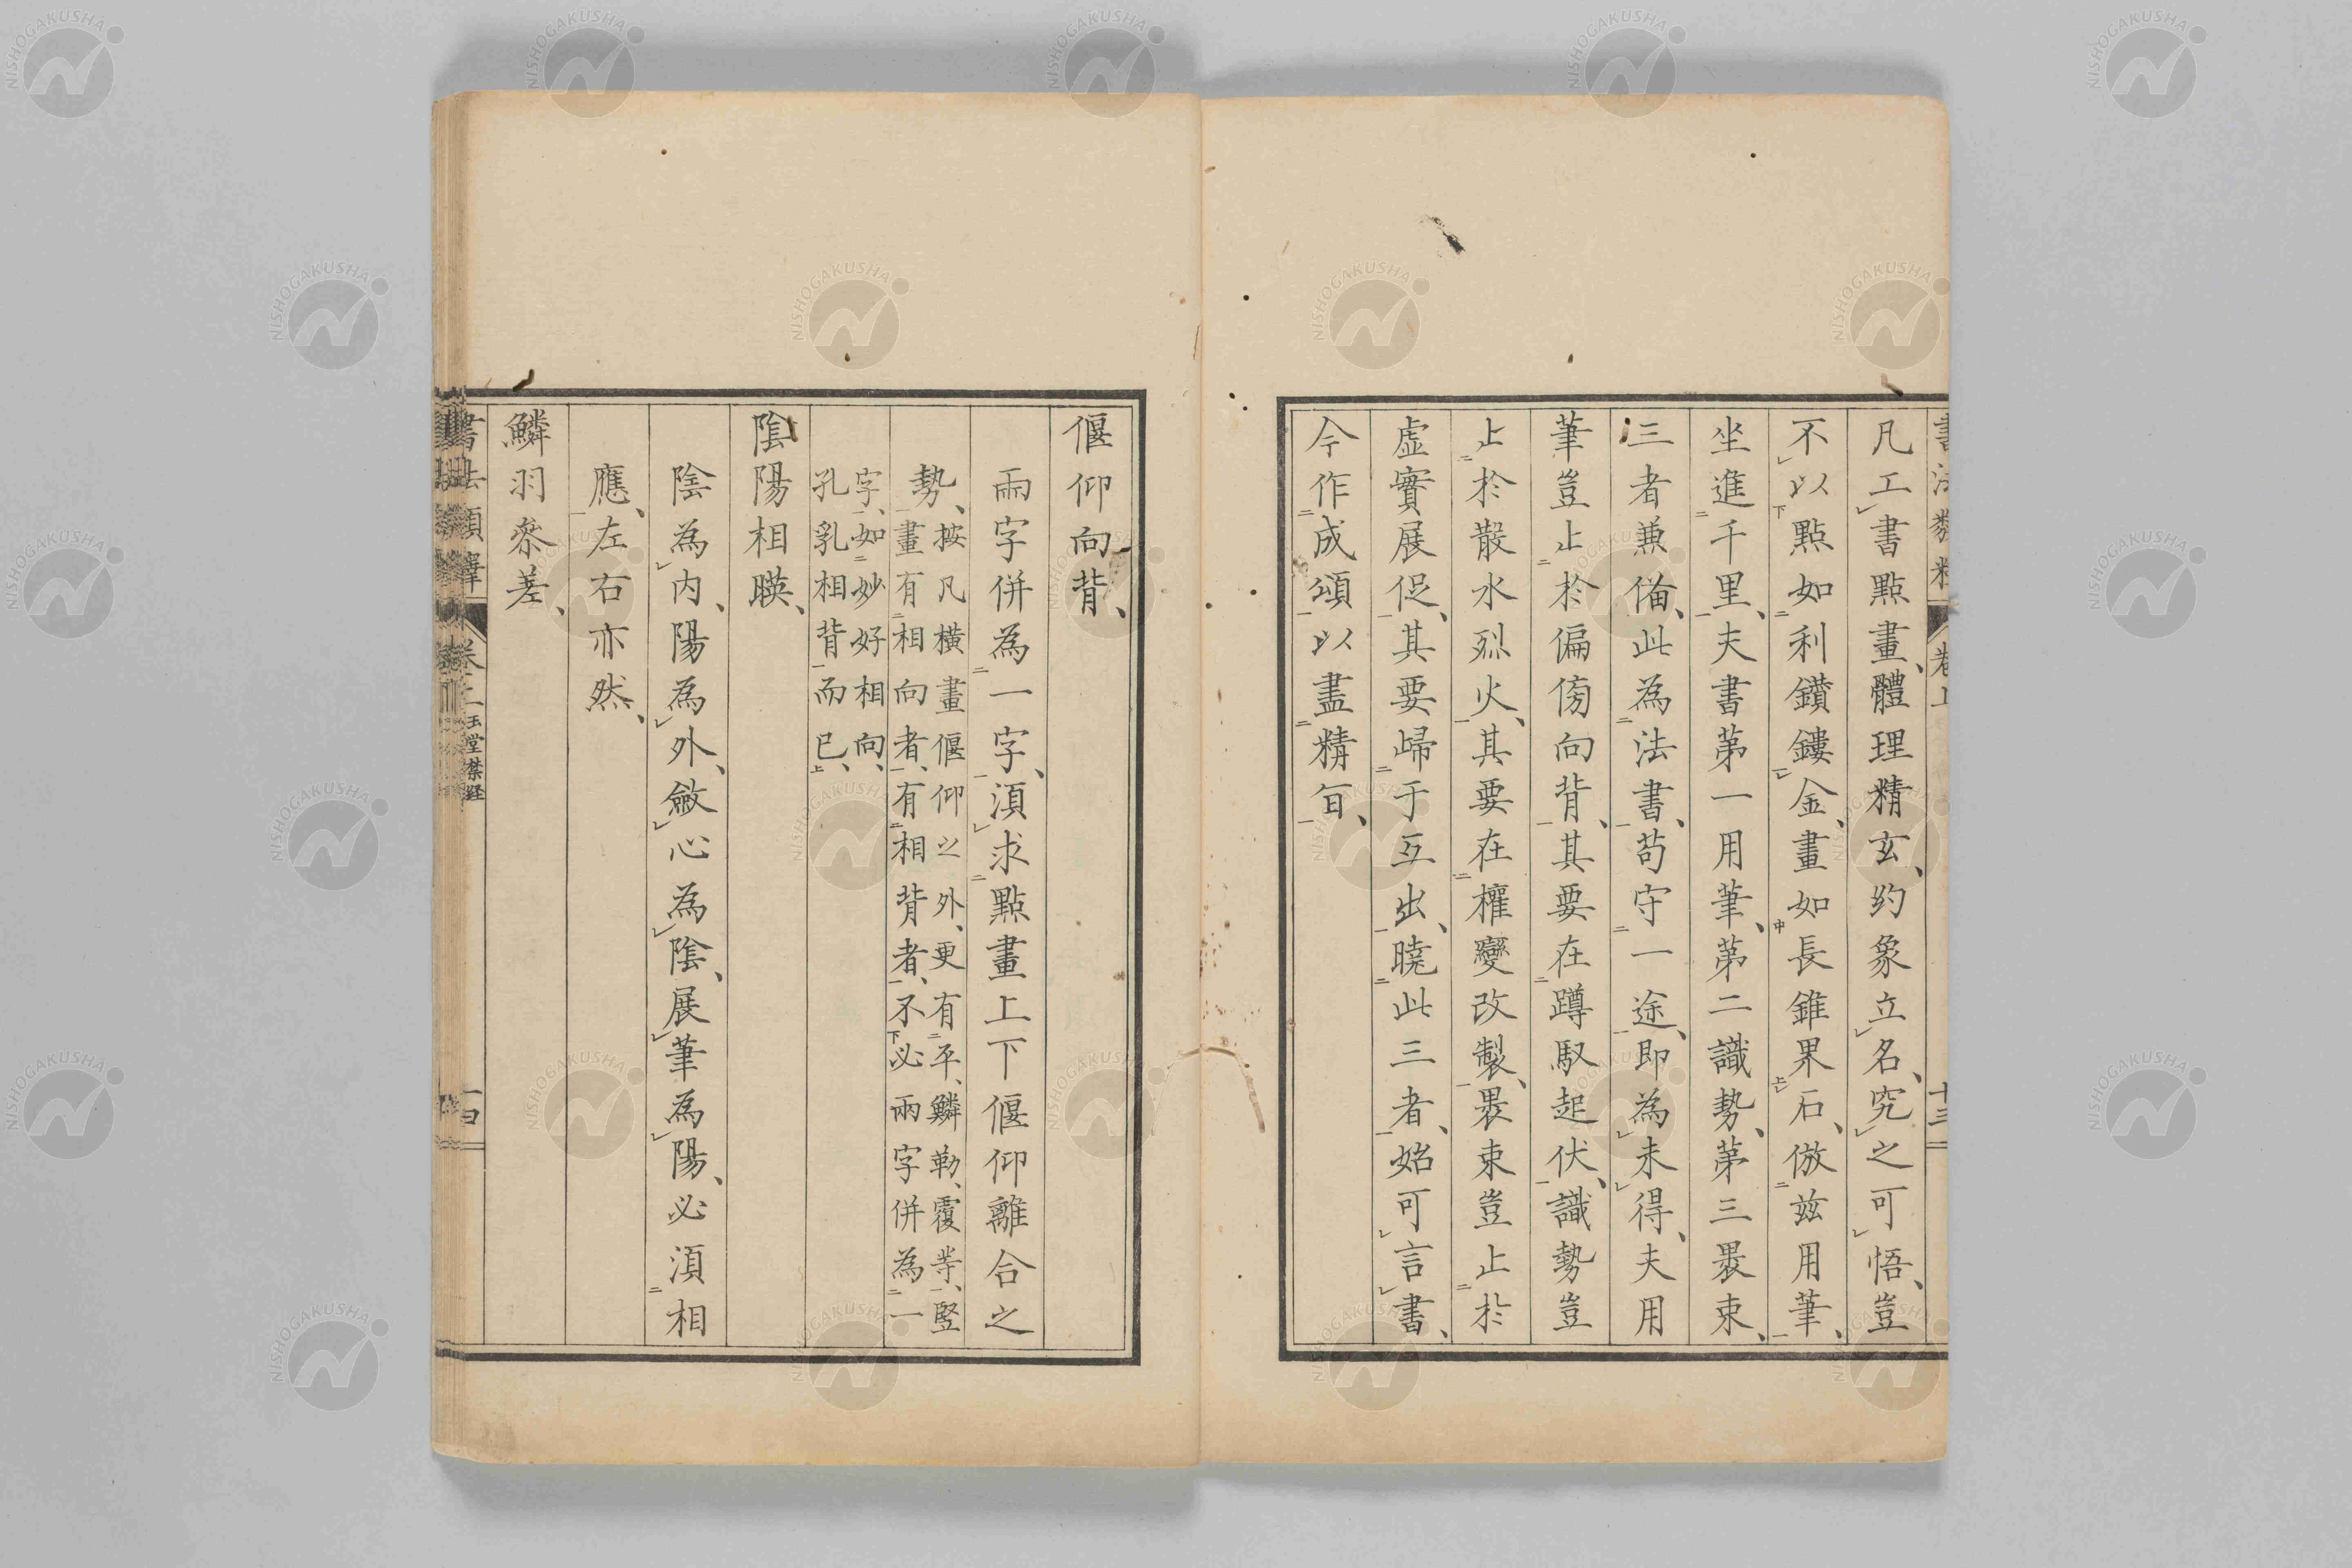 凡工書點畫、體理精玄、約象立名、究之可悟、豈
不以點如利鑽鏤金、畫如長錐畀石、倣茲用筆、
坐進千里、夫書第一用筆、第二識勢、第三褁束、
三者兼俻、此為法書、苟守一途、即為未得、夫用
筆豈止於偏傍向背、其要在蹲馭起伏、識勢豈
止於散水烈火、其要在權變改製、褁束豈止於
虛實展促、其要歸于互出、曉此三者、始可言書、
今作成頌以盡精旨、
偃仰向背、
兩字併為一字、湏求點畫上下偃仰離合之
勢、
按凡橫畫偃仰之外、更有平、鱗勒、覆等、竪
畫有相向者、有相背者、不必兩字併為一
字、如妙好相向、
孔乳相背而已、
陰陽相暎、
陰為内、陽為外、斂心為陰、展筆為陽、必湏相
應、左右亦然、
鱗羽參差、
玉堂禁経
NISHOGAKUSHA